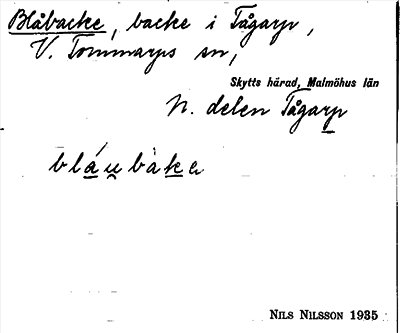 Blåbacke, backe i Tågarp,
V. Tommarps sn,
Skytts härad, Malmöhus län
N. delen Tågarp
bláu̯bàkɐ
NILS NILSSON 1935